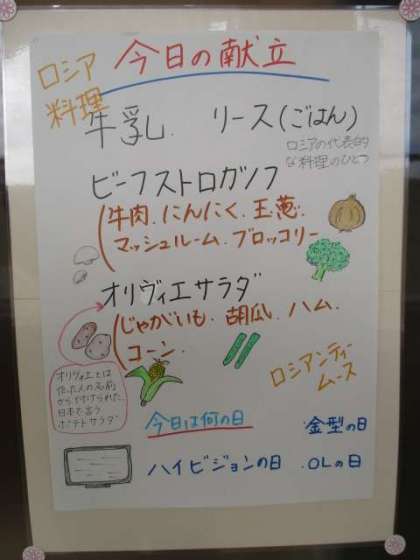 今日の献立
ロシア
料理
牛乳. リース(ごはん)
ロシアの代表的
な料理のひとつ
ビーフストロガノフ
(牛肉.にんにく.玉葱.
マッシュルーム.ブロッコリー
オリヴィエサラダ
(じゃがいも.胡瓜.ハム.
コーン.
オリヴィエとは
作った人の名前
から付けられた。
日本で言う
ポテトサラダ
ロシアンティー
ムース
今日は何の日
.金型の日
ハイビジョンの日 .OLの日